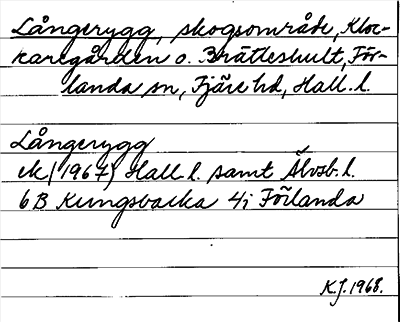 Långerygg, skogsområde, Kloc-
karegården o. Brätteshult, För-
landa sn, Fjäre hd, Hall. l.
Långerygg
ek (1967) Hall l. samt Älvsb. l.
6B Kungsbacka 4i Förlanda
K.J. 1968.